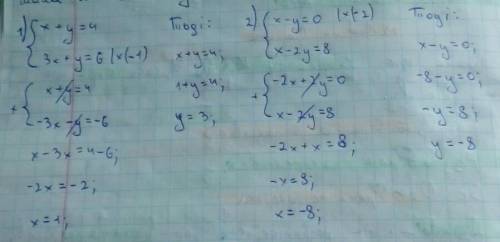 1) { x+y=4
3x+y=6 |x(-1)
+ { x+y=4
-3x-y=-6
x-3x=4-6;
-2x=-2;
x=1;
Тоді:
x+y=4;
1+y=4;
y=3;
2) { x-y=0 |x(-2)
x-2y=8
+ { -2x+2y=0
x-2y=8
-2x+x=8;
-x=8;
x=-8;
Тоді:
x-y=0;
-8-y=0;
-y=8;
y=-8